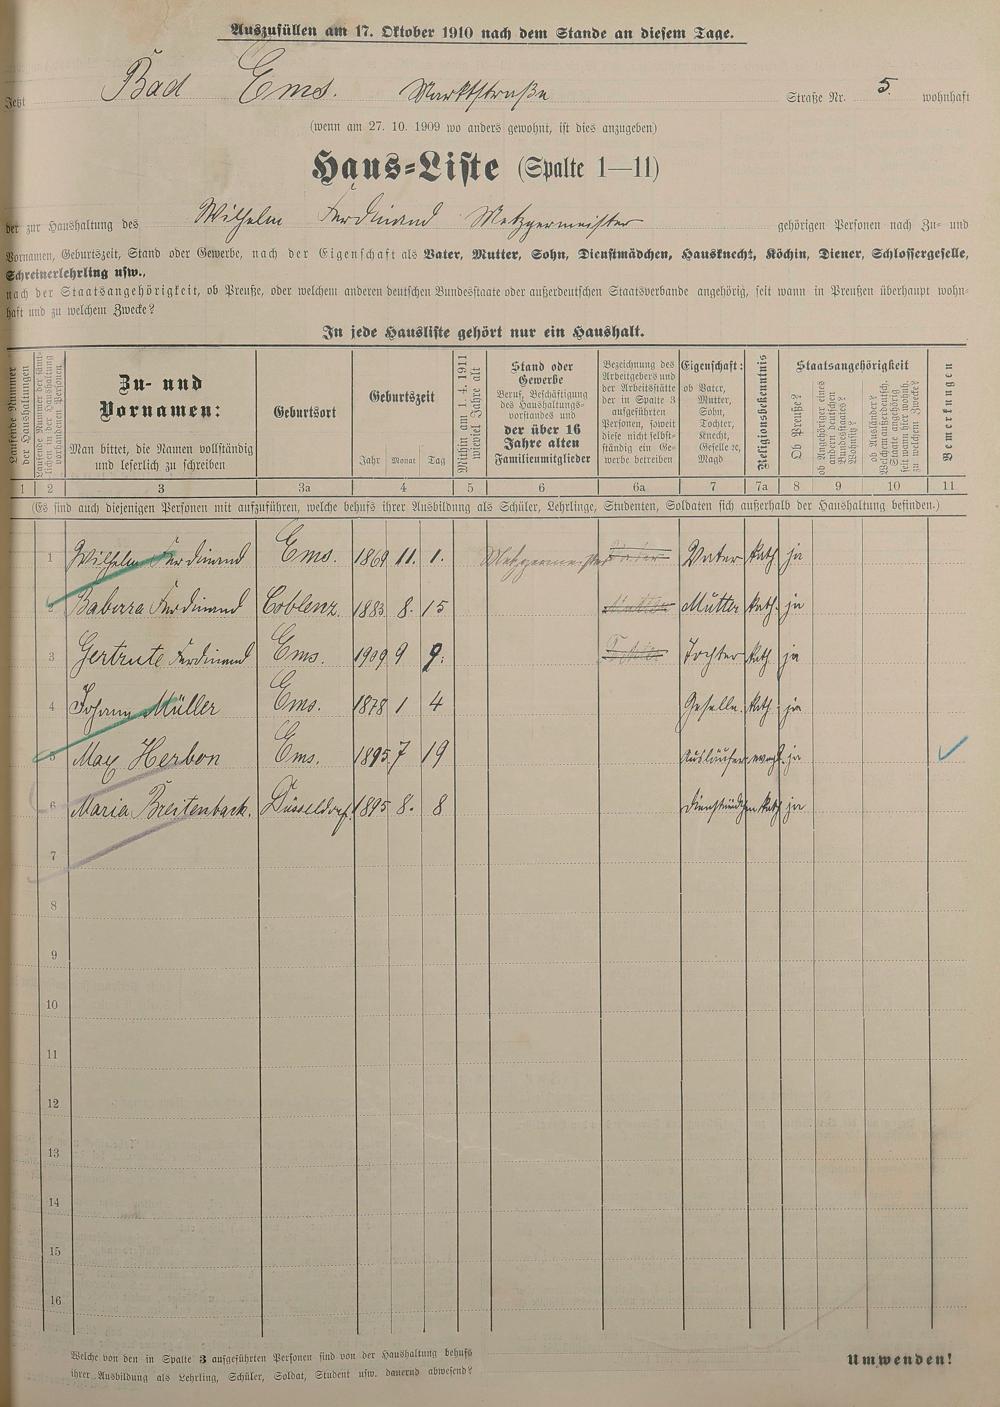 Auszufüllen am 17. Oktober 1910 nach dem Stande an diesem Tage.
Jetzt Bad Ems. Marktstraße Straße Nr. 5. wohnhaft
(wenn am 27. 10. 1909 wo anders gewohnt, ist dies anzugeben)
Haus-Liste (Spalte 1—11)
der zur Haushaltung des Wilhelm Ferdinand Metzgermeister gehörigen Personen nach Zu- und
Vornamen, Geburtszeit, Stand oder Gewerbe, nach der Eigenschaft als Vater, Mutter, Sohn, Dienstmädchen, Hausknecht, Köchin, Diener, Schlossergeselle,
Schreinerlehrling usw.,
nach der Staatsangehörigkeit, ob Preuße, oder welchem anderen deutschen Bundesstaate oder außerdeutschen Staatsverbande angehörig, seit wann in Preußen überhaupt wohn-
haft und zu welchem Zwecke?
In jede Hausliste gehört nur ein Haushalt.
Laufende Nummer der Haushaltungen
Laufende Nummer der sämt-
lichen in der Haushaltung
vorhandenen Personen.
Zu- und
Vornamen:
Man bittet, die Namen vollständig
und leserlich zu schreiben
Geburtsort
Geburtszeit
Jahr Monat Tag
Mithin am 1. 4. 1911
wieviel Jahre alt
Stand oder
Gewerbe
Beruf, Beschäftigung
des Haushaltungs-
vorstandes und
der über 16
Jahre alten
Familienmitglieder
Bezeichnung des
Arbeitgebers und
der Arbeitsstätte
der in Spalte 3
aufgeführten
Personen, soweit
diese nicht selbst-
ständig ein Ge-
werbe betreiben
Eigenschaft:
ob Vater,
Mutter,
Sohn,
Tochter,
Knecht,
Geselle ꝛc,
Magd
Religionsbekenntnis
Staatsangehörigkeit
Ob Preuße?
ob Angehöriger eines
andern deutschen
Bundesstaates?
Womit?
ob Ausländer?
Welchem außerdeutsch.
Staate angehörig
seit wann hier wohnh.
zu welchem Zwecke?
Bemerkungen
1 2 3 3a 4 5 6 6a 7 7a 8 9 10 11
(Es sind auch diejenigen Personen mit aufzuführen, welche behufs ihrer Ausbildung als Schüler, Lehrlinge, Studenten, Soldaten sich außerhalb der Haushaltung befinden.)
1 Wilhelm Ferdinand Ems. 1869 11. 1. Metzgermeister Vater Vater kath ja
2 Baberra Ferdinand Coblenz. 1883 8. 15 Mutter Mutter kath. ja
3 Gertrute Ferdinand Ems. 1909 9 9. Tochter Tochter kath ja
4 Johann Müller Ems. 1878 1 4 Geselle. kath. ja
5 Max Herbon Ems. 1895 7 19 Ausläufer evgl. ja
6 Maria Breitenbach. Düsseldorf. 1895 8. 8 Dienstmädchen kath ja
7
8
9
10
11
12
13
14
15
16
Welche von den in Spalte 3 aufgeführten Personen sind von der Haushaltung behufs
ihrer Ausbildung als Lehrling, Schüler, Soldat, Student usw. dauernd abwesend?
Umwenden!